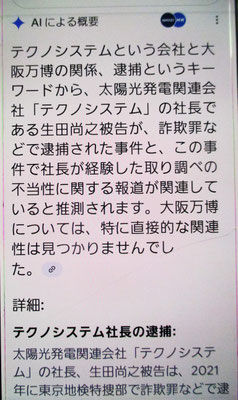 AI による概要
テクノシステムという会社と大
阪万博の関係、逮捕というキー
ワードから、太陽光発電関連会
社「テクノシステム」の社長で
ある生田尚之被告が、詐欺罪な
どで逮捕された事件と、この事
件で社長が経験した取り調べの
不当性に関する報道が関連して
いると推測されます。大阪万博
については、特に直接的な関連
性は見つかりませんでし
た。
詳細:
テクノシステム社長の逮捕:
太陽光発電関連会社「テクノシステ
ム」の社長、生田尚之被告は、2021
年に東京地検特捜部で詐欺罪などで逮